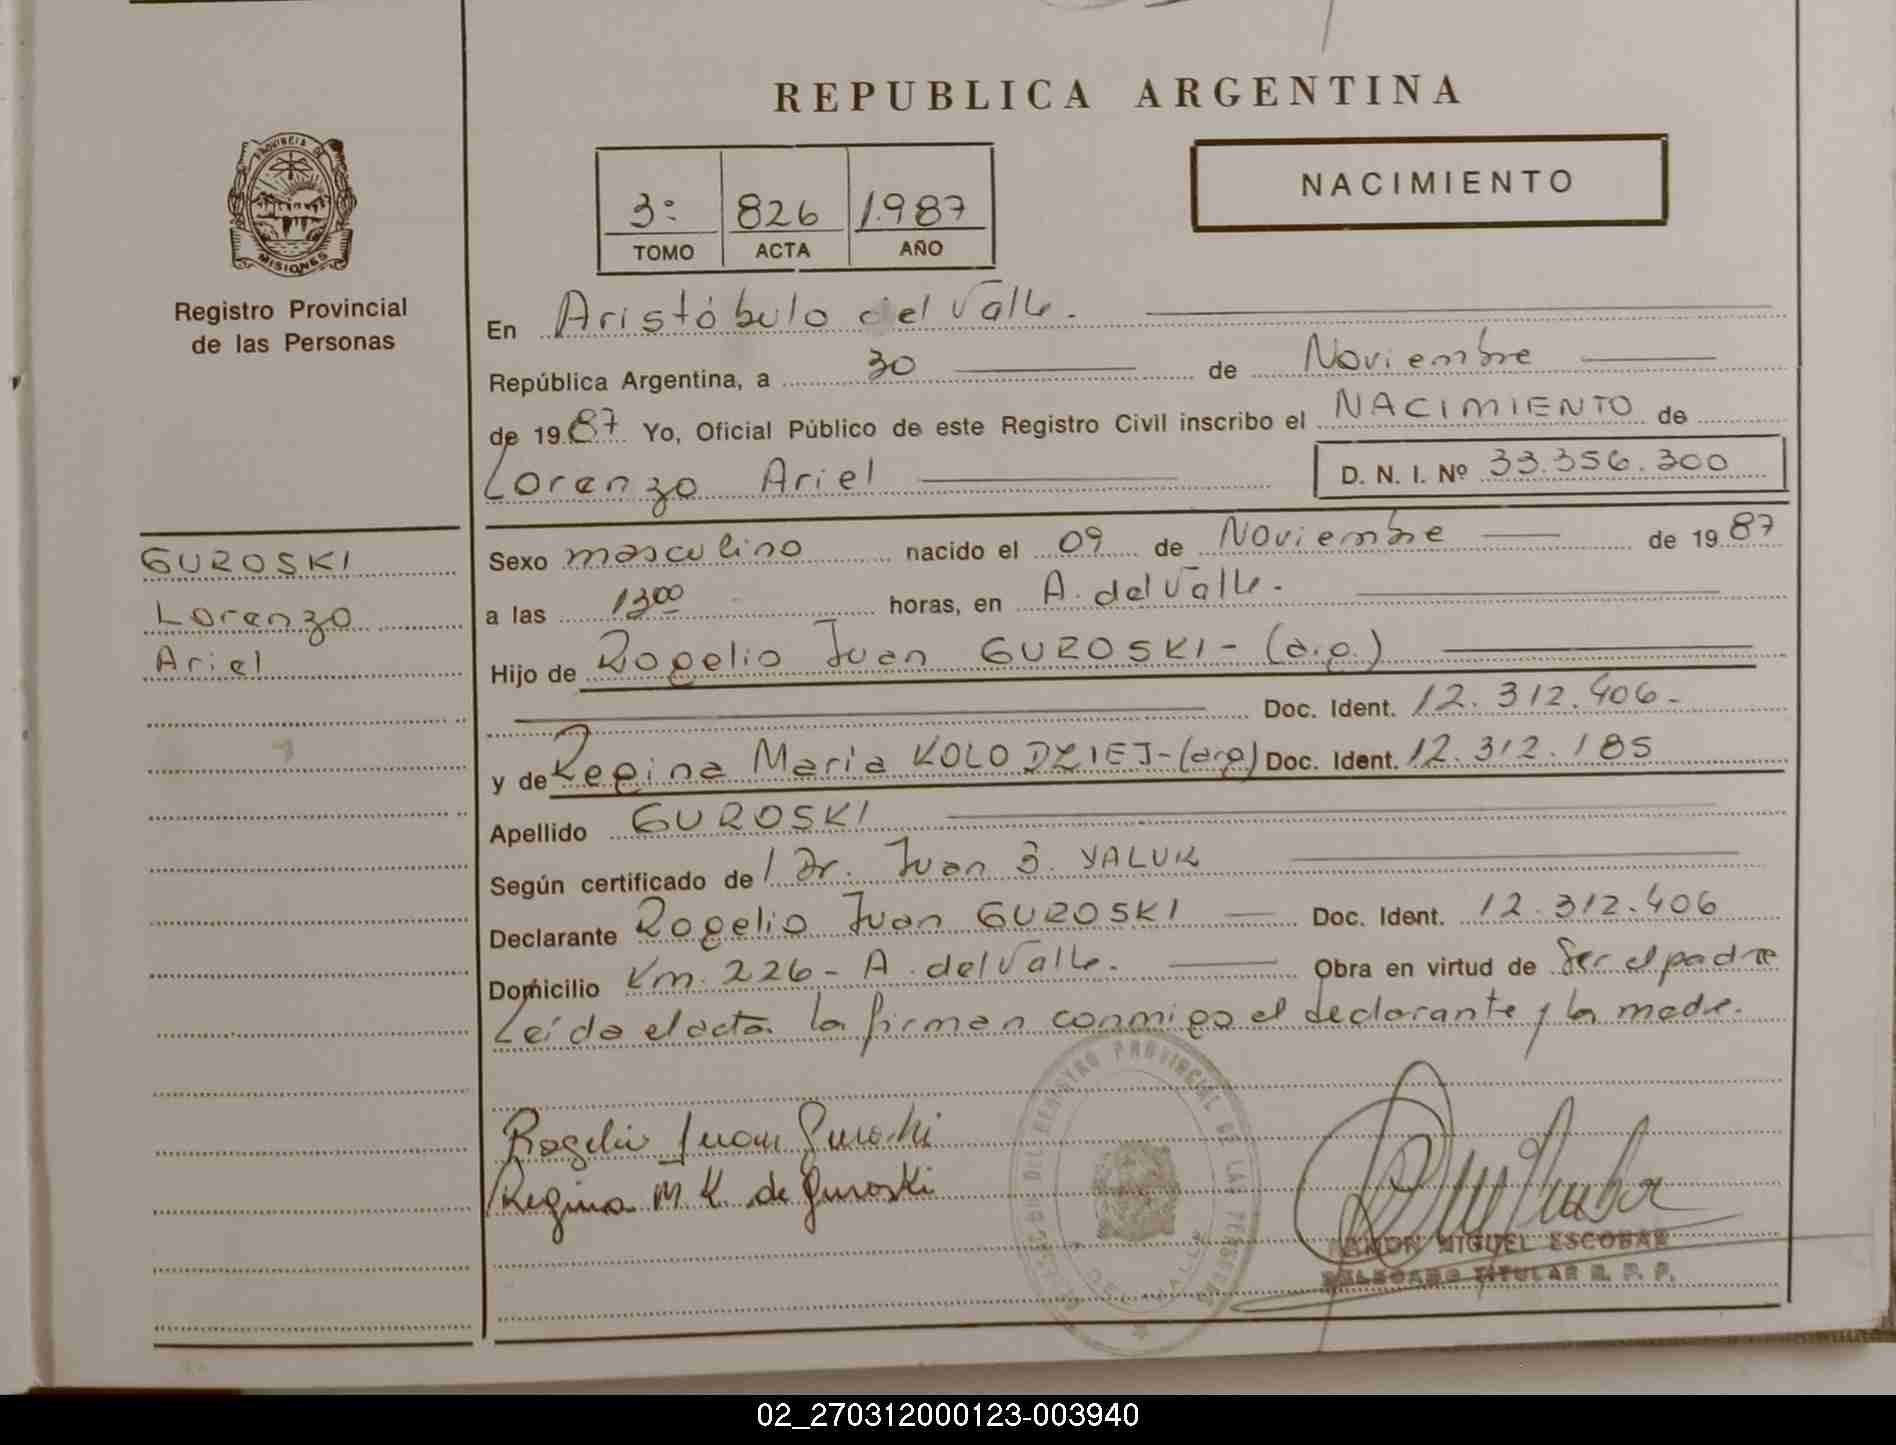 REPUBLICA ARGENTINA
PROVINCIA DE
MISIONES
Registro Provincial
de las Personas
3º 826 1987
TOMO ACTA AÑO
NACIMIENTO
En Aristóbulo del Valle.
República Argentina, a 30 de Noviembre
de 1987 Yo, Oficial Público de este Registro Civil inscribo el NACIMIENTO de
Lorenzo Ariel D. N. I. Nº 33.356.300
GUROSKI
Lorenzo
Ariel
Sexo masculino nacido el 09 de Noviembre de 1987
a las 13⁰⁰ horas, en A. del Valle.
Hijo de Rogelio Juan GUROSKI - (a.g.)
Doc. Ident. 12.312.406-
y de Regina Maria KOLODZIEJ - (arg) Doc. Ident. 12.312.185
Apellido GUROSKI
Según certificado de l Dr. Juan YALUK
Declarante Rogelio Juan GUROSKI Doc. Ident. 12.312.406
Domicilio Km. 226 - A. del Valle. Obra en virtud de Ser el padre
Leída el acta la firman conmigo el declarante y la madre.
Rogelio Juan Guroski
Regina M. K. de Guroski
DEL REGISTRO PROVINCIAL DE LAS PERSONAS
DEL VALLE
RAMON MIGUEL ESCOBAR
DELEGADO TITULAR R. P. P.
02_270312000123-003940